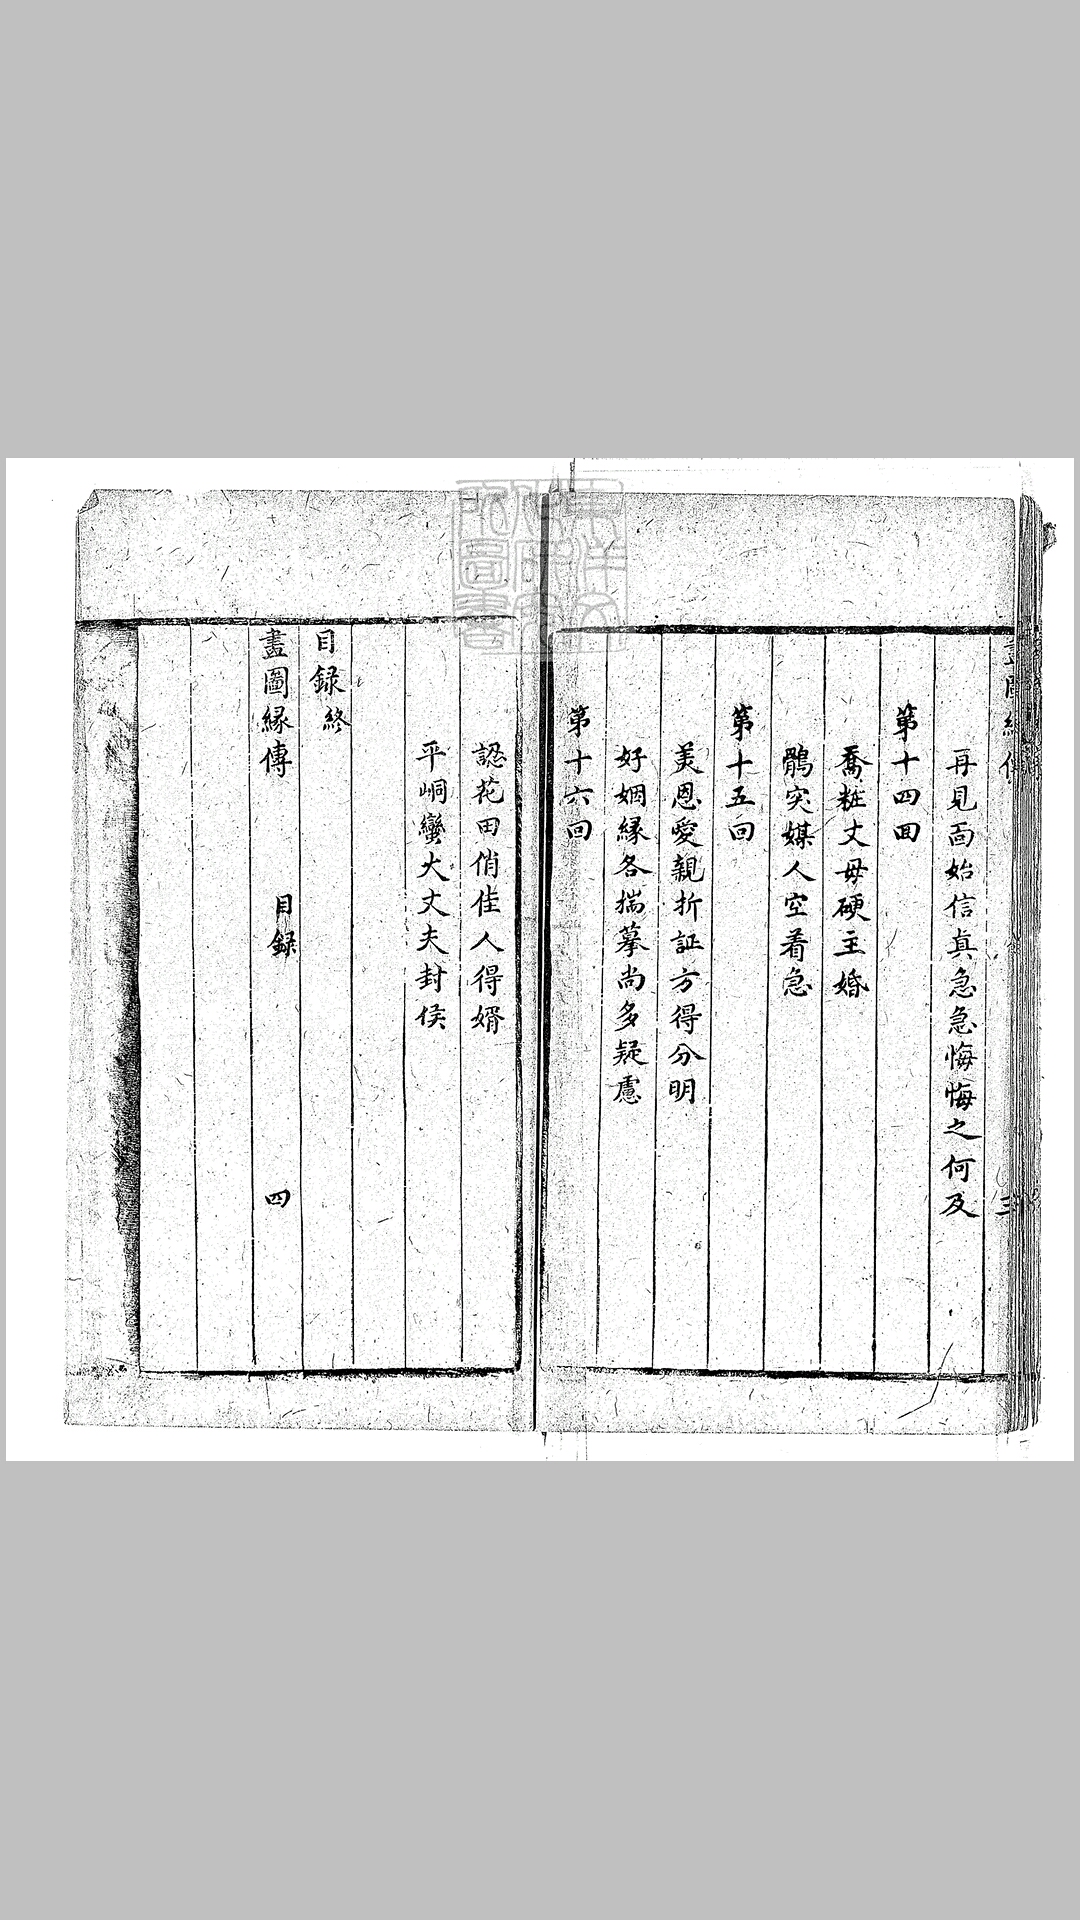 再見面始信真急急悔悔之何及
第十四回
喬粧丈母硬主婚
鶻突媒人空着急
第十五回
美恩愛親折証方得分明
好姻緣各揣摹尚多疑慮
第十六回
認花田俏佳人得婿
平峒蠻大丈夫封侯
目録終
畫圖緣傳 目録 四